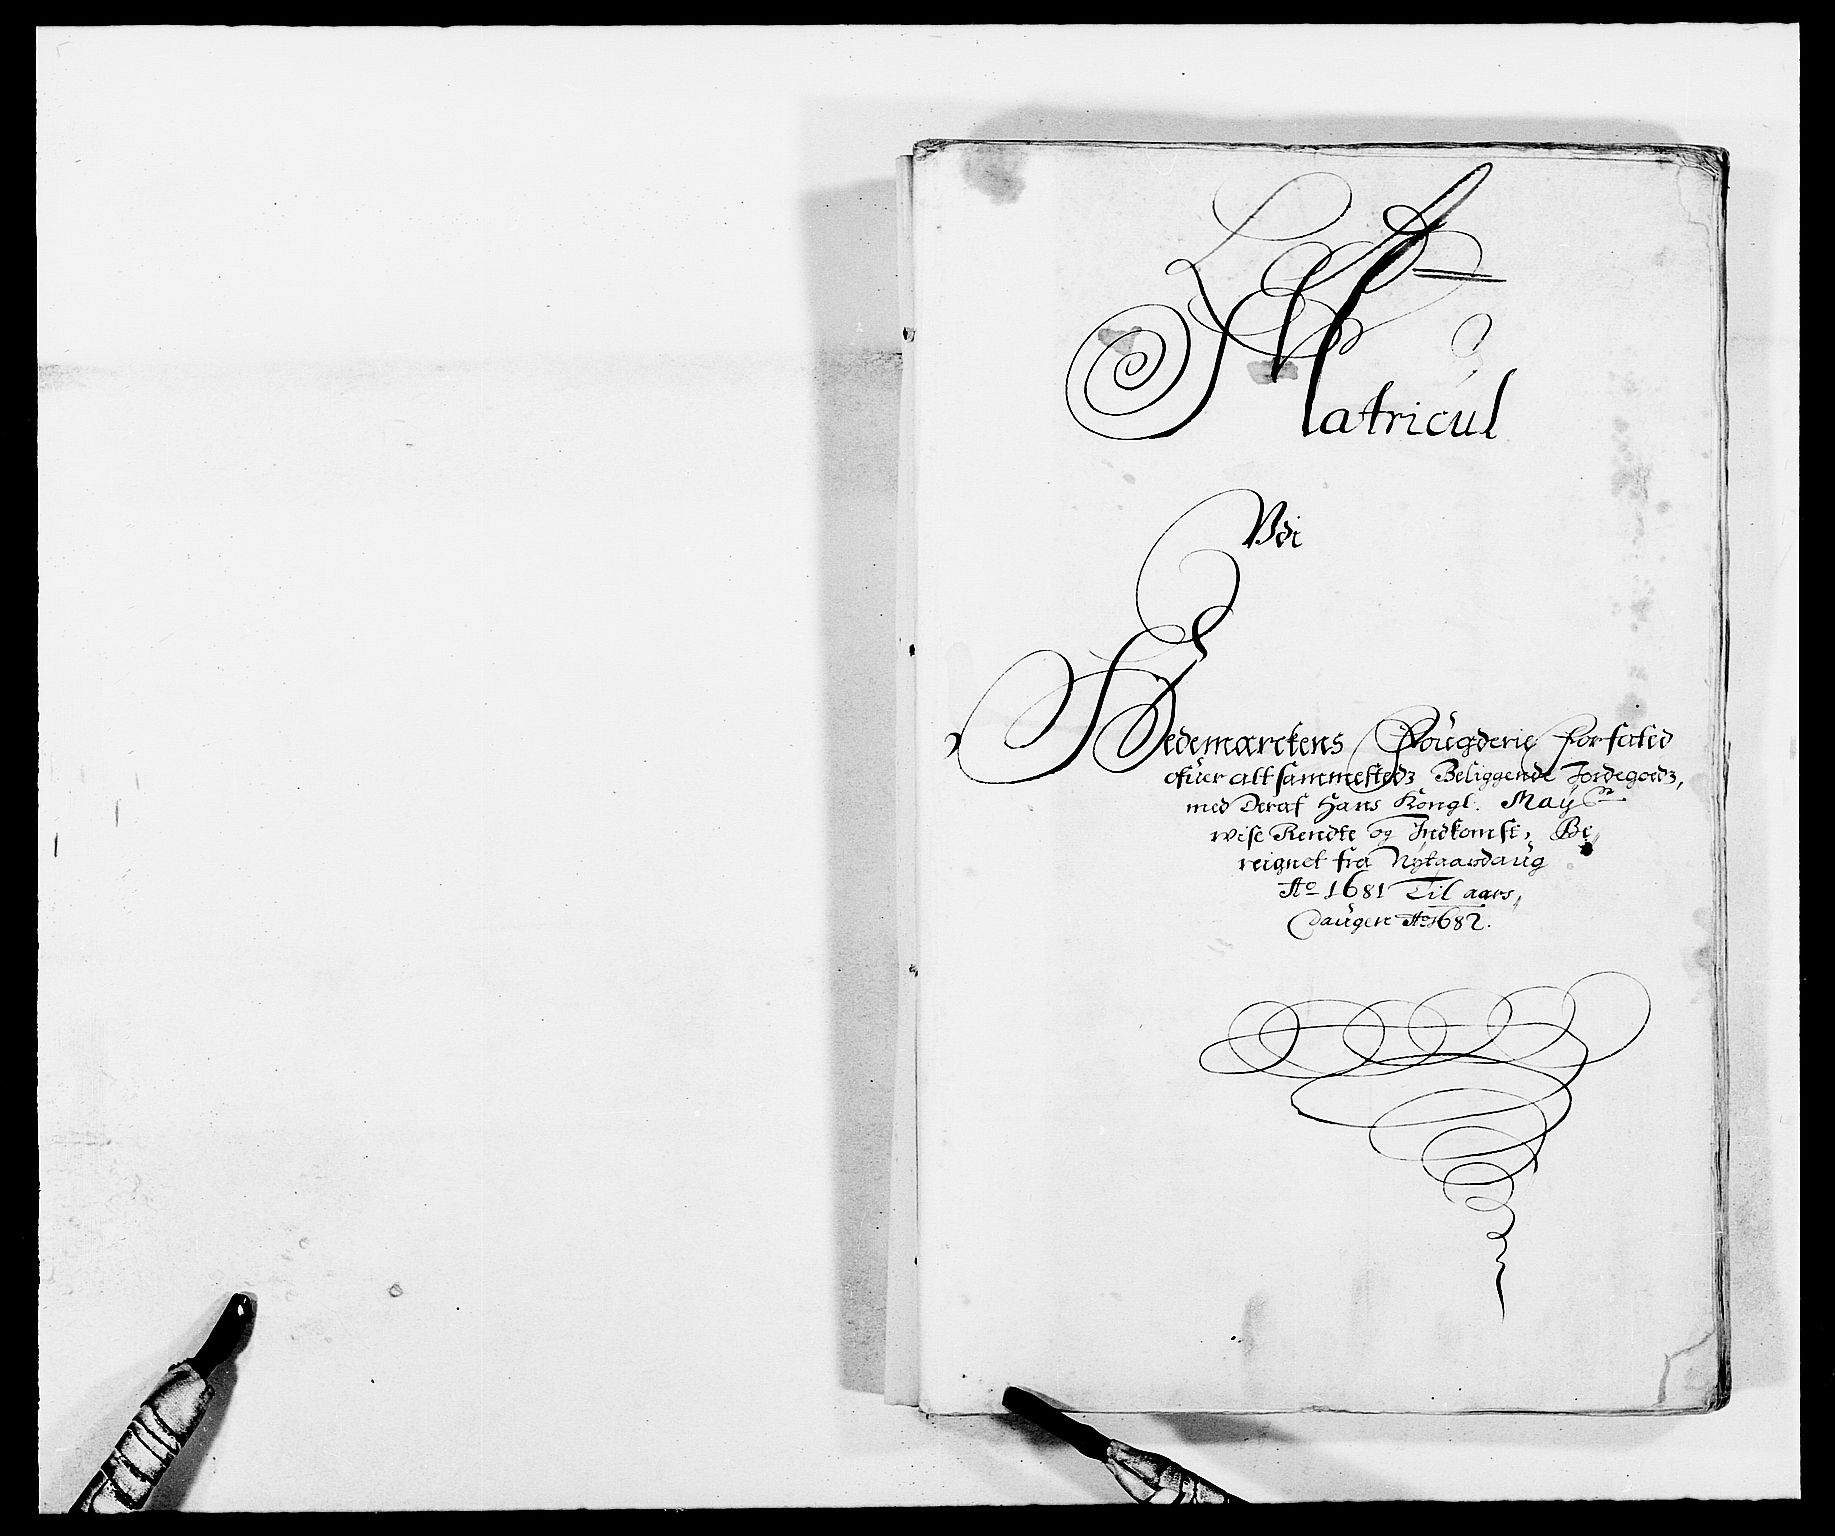 Matricul
Vdi
Hedemarckens Fougderie Forfated
ofuer alt sammesteds Beliggende Jordegods,
med Deraf Hans Kongl. Mayts
wise Rendte og Indkomst, Be„
reignet fra Nytaarsdaug
Ao 1681 Til aars„
daugen Ao 1682.